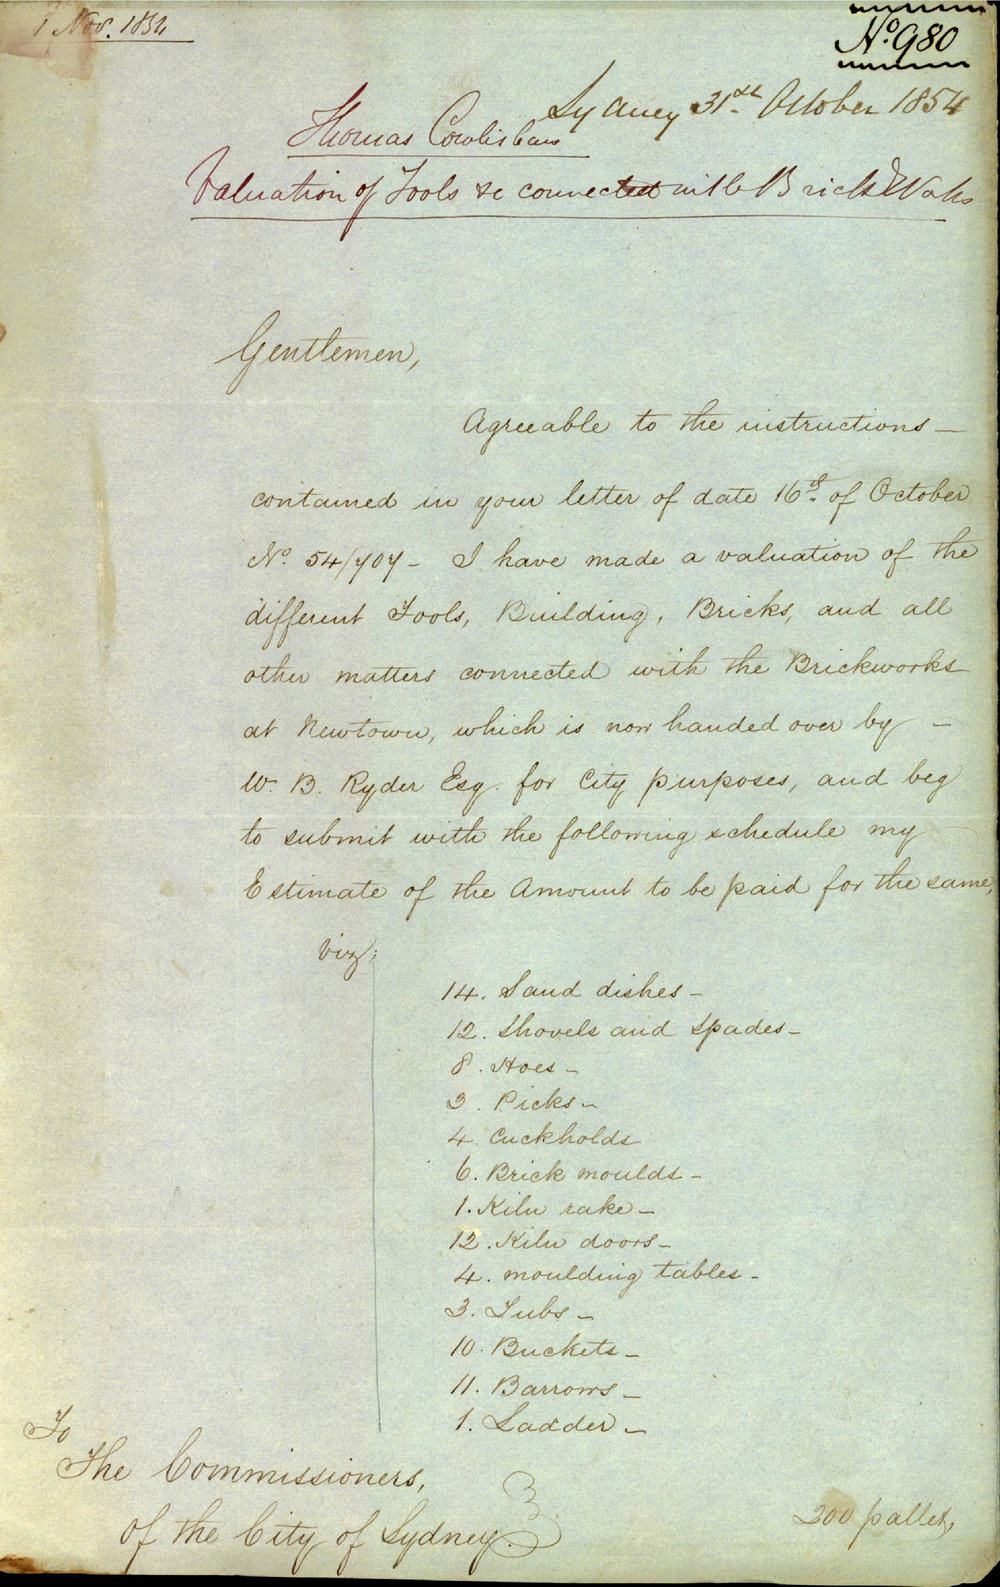 1 Nov. 1854
No. 980
Sydney 31st October 1854
Thomas Cowlishaw
Valuation of Tools &c connected with Brick Works
Gentlemen,
Agreeable to the instructions —
contained in your letter of date 16th of October
No. 54/707 - I have made a valuation of the
different Tools, Building, Bricks, and all
other matters connected with the Brickworks
at Newtown, which is now handed over by —
W. B. Ryder Esq. for City purposes, and beg
to submit with the following schedule my
Estimate of the Amount to be paid for the same,
viz;
14. Sand dishes -
12. Shovels and Spades -
8. Hoes -
3. Picks -
4. Cuckholds
6. Brick moulds -
1. Kiln rake -
12. Kiln doors -
4. moulding tables -
3. Tubs -
10. Buckets -
11. Barrows -
1. Ladder -
To
The Commissioners,
of the City of Sydney.
200 pallet,